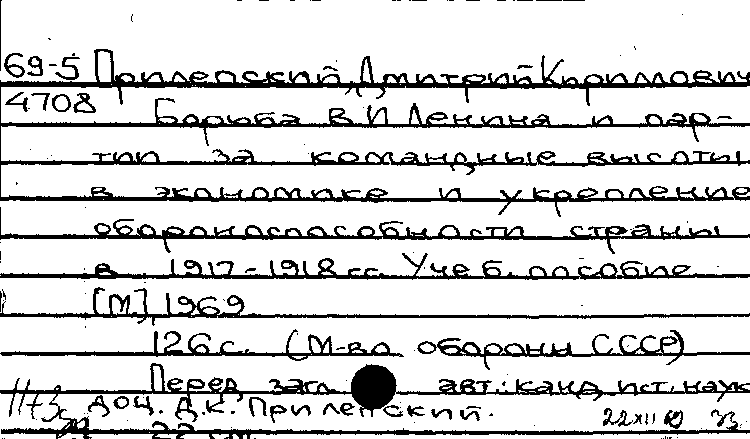 69-5 Прилепский, Дмитрий Кириллович
4708
Борьба В.И Ленина и пар-
тии за командные высоты
в экономике и укрепление
обороноспособности страны
в 1917-1918 гг. Учеб. пособие
[М.], 1969
126 с. (М-во обороны СССР)
Перед загл. авт.: канд. ист. наук
доц. Д.К. Прилепский.
22 см